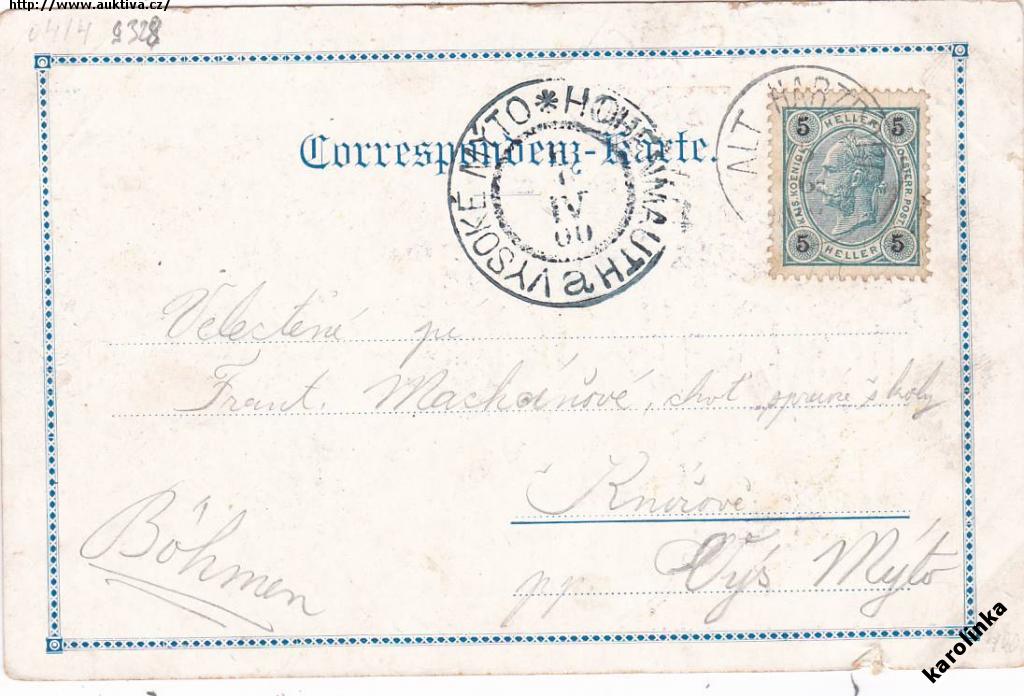 http://www.auktiva.cz/
0414 9328
Correspondenz-Karte.
VYSOKÉ MÝTO * HOHENMAUTH a
IV
00
ALT HARZD
5 HELLER 5
KAIS. KOENIGL. OESTERR. POST
5 HELLER 5
Velectěné pí
Frant. Macháňové, choť správce školy
Böhmen
pp. Výs Mýto
karolinka